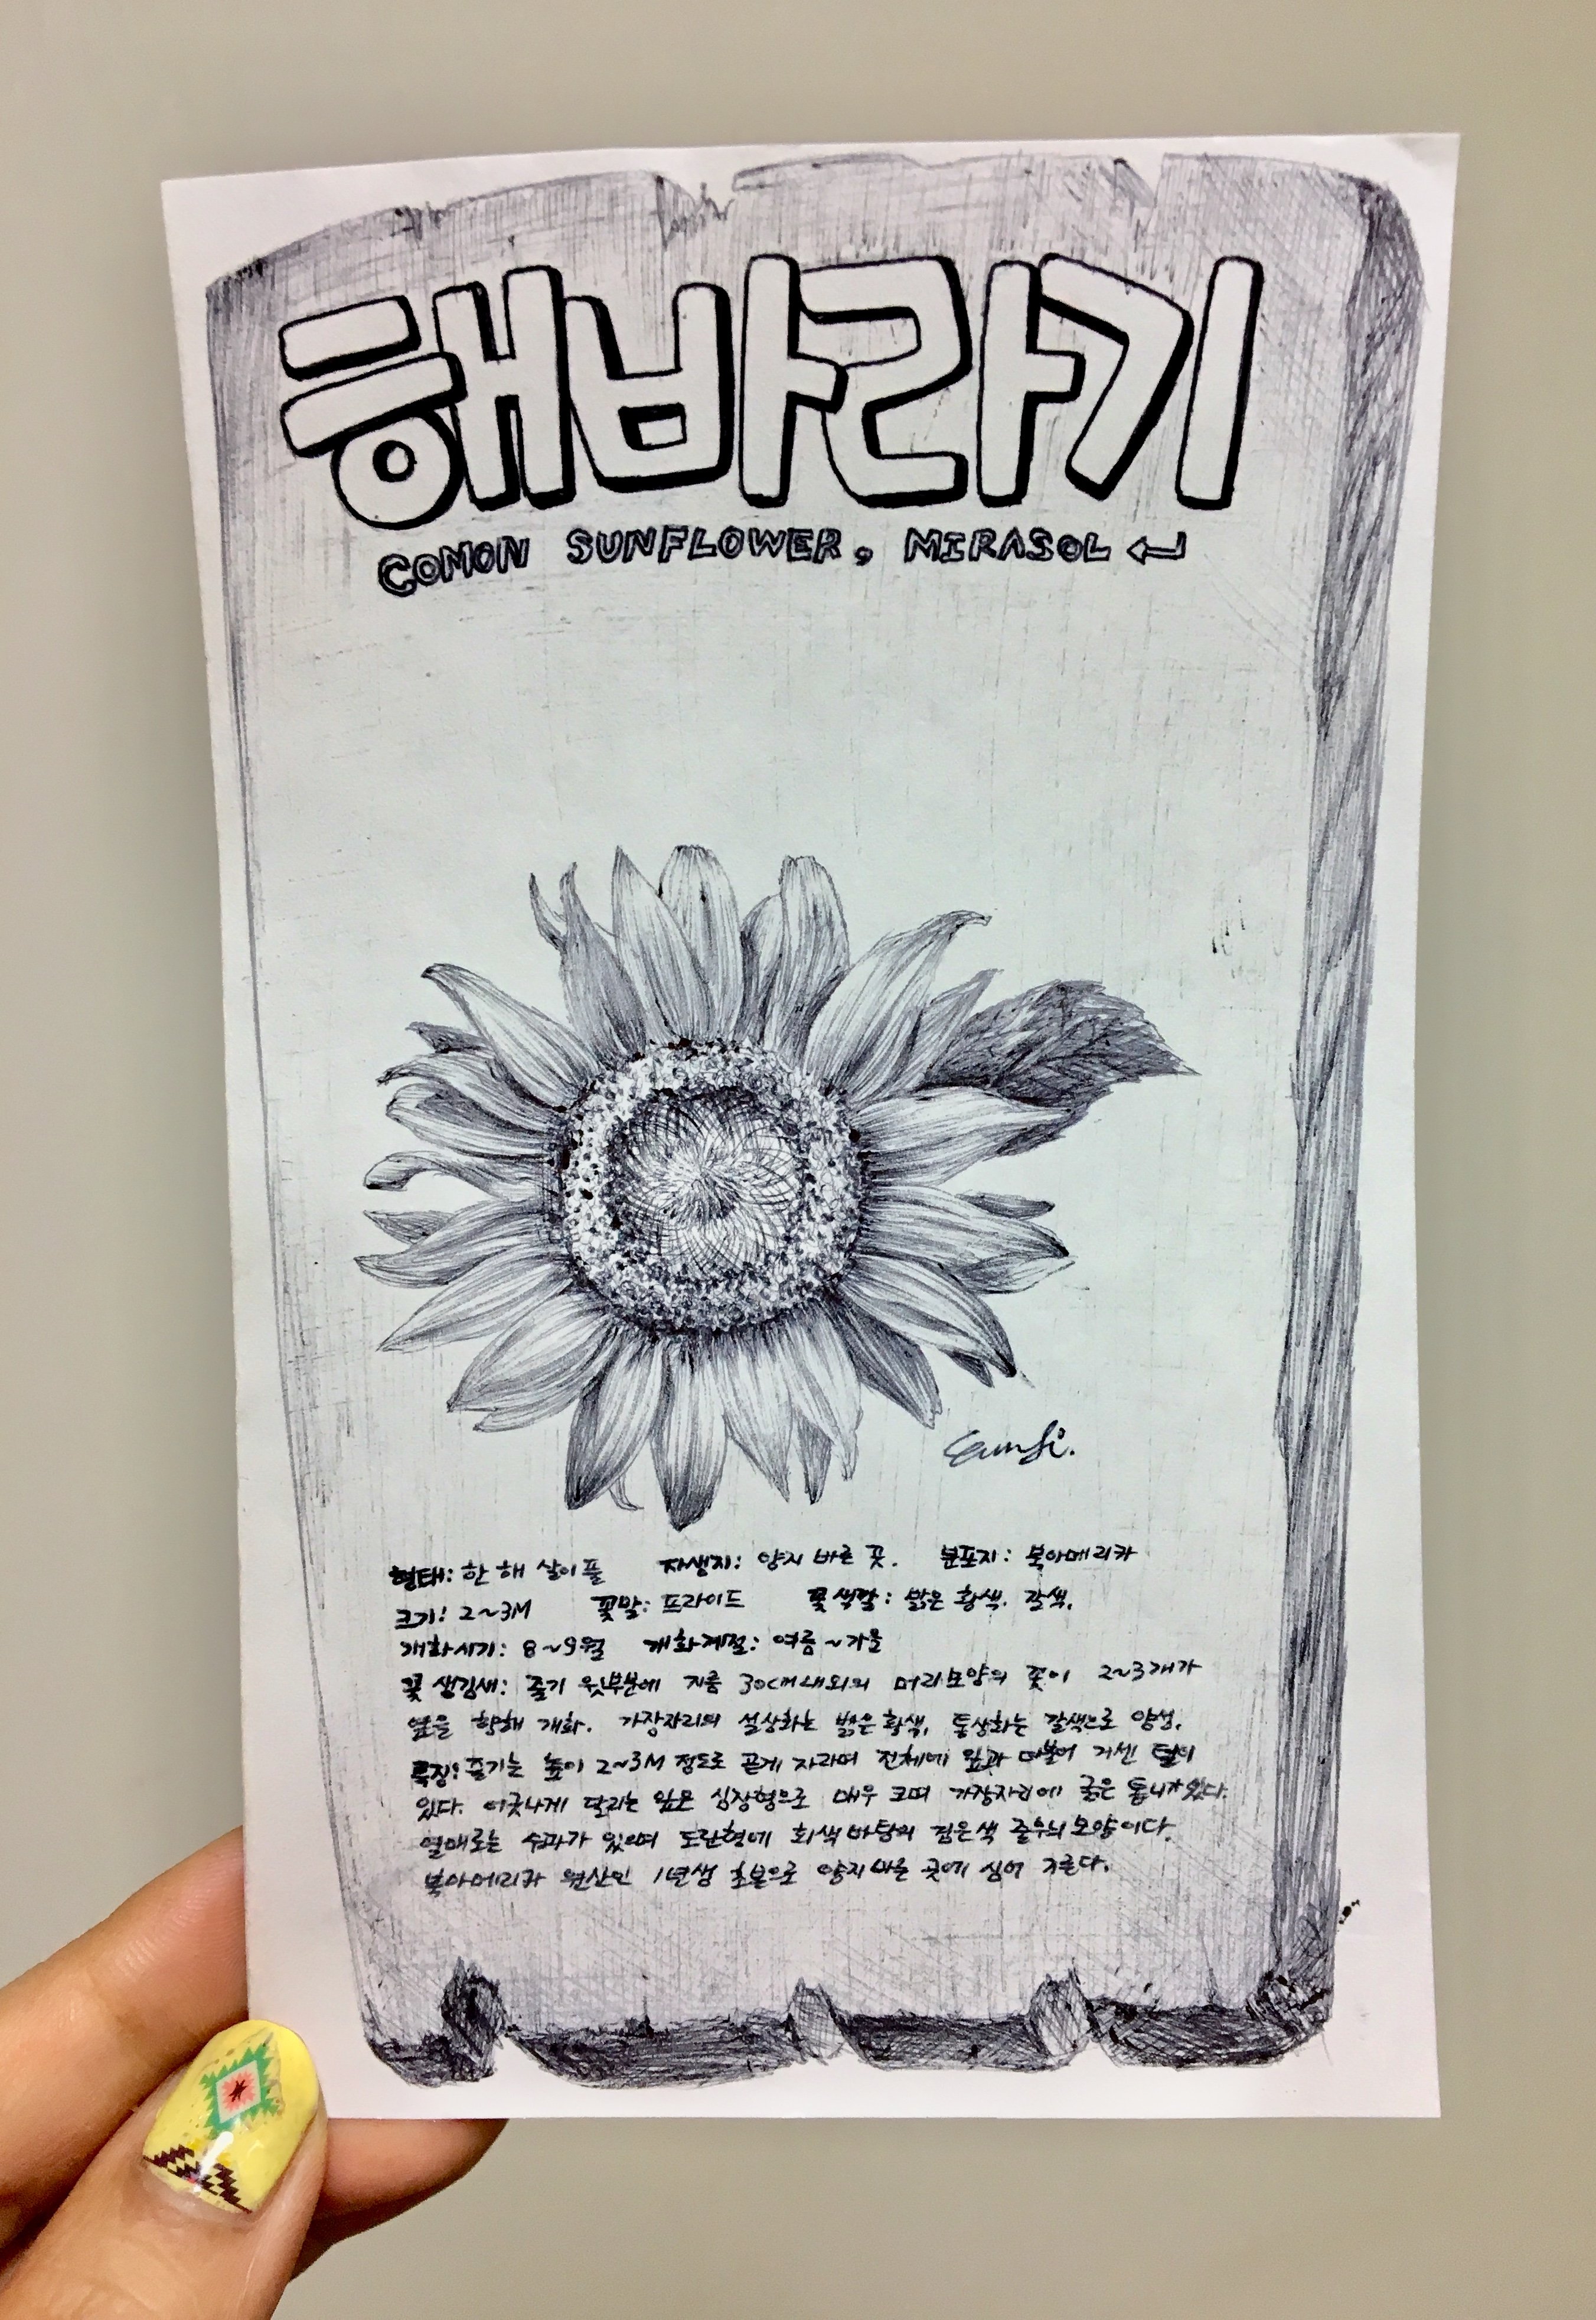 해바라기
COMON SUNFLOWER, MIRASOL
Eunsi.
형태: 한해 살이풀 자생지: 양지 바른 곳. 분포지: 북아메리카
크기: 2~3M 꽃말: 프라이드 꽃색깔: 밝은 황색. 갈색.
개화시기: 8~9월 개화계절: 여름~가을
꽃 생김새: 줄기 윗부분에 지름 30cm내외의 머리모양의 꽃이 2~3개가
옆을 향해 개화. 가장자리의 설상화는 밝은황색, 통상화는 갈색으로 양성.
특징: 줄기는 높이 2~3M 정도로 곧게 자라며 전체에 잎과 더불어 거센 털이
있다. 어긋나게 달리는 잎은 심장형으로 매우 크며 가장자리에 굵은 톱니가있다.
열매로는 수과가 있으며 도란형에 회색바탕의 검은색 줄무늬모양이다.
북아메리카 원산인 1년생 초본으로 양지바른 곳에 심어 기른다.